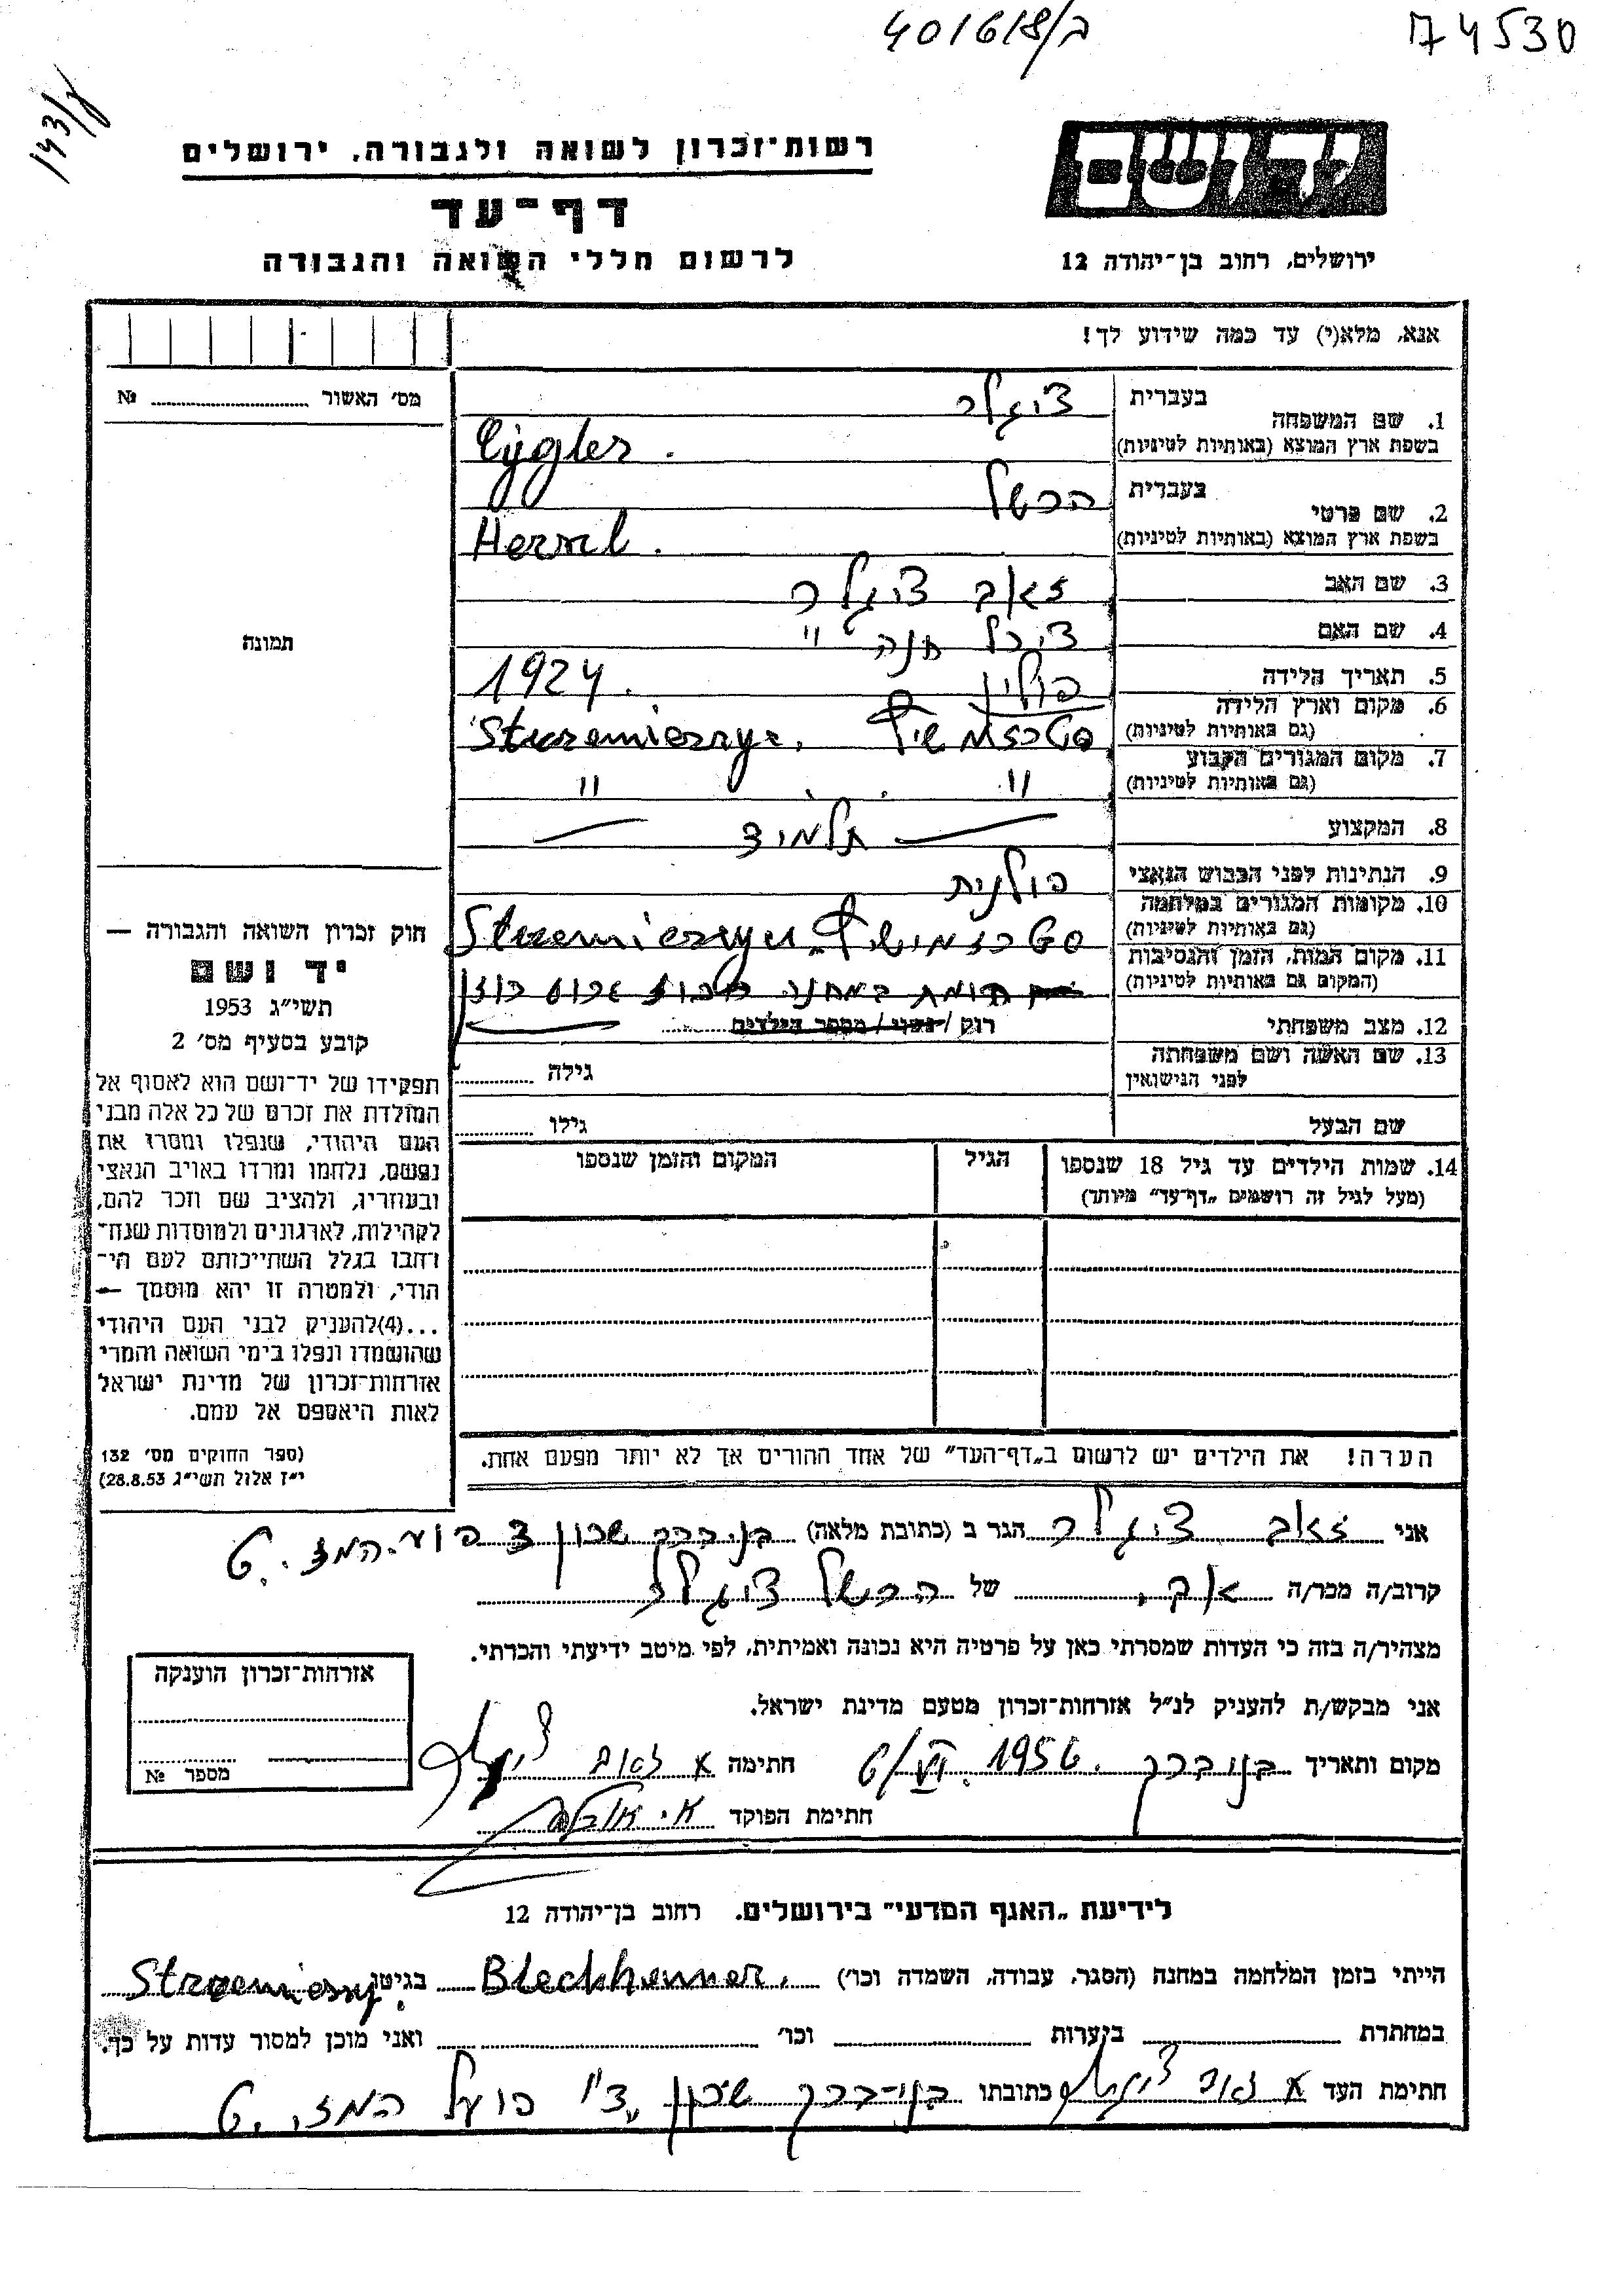 401618/ב
74530
143/ע
רשות־זכרון לשואה ולגבורה, ירושלים
יד ושם
דף־עד
לרשום חללי השואה והגבורה
ירושלים, רחוב בן־יהודה 12
אנא, מלא(י) עד כמה שידוע לך!
מס׳ האשור № 
1. שם המשפחה
בעברית ציגלר
בשפת ארץ המוצא (באותיות לטיניות) Cygler.
2. שם פרטי
בעברית הרשל
בשפת ארץ המוצא (באותיות לטיניות)
3. שם האב זאב ציגלר
4. שם האם חנה "
תמונה
5. תאריך הלידה 1924.
6. מקום וארץ הלידה פולין
(גם באותיות לטיניות)
7. מקום המגורים הקבוע " "
(גם באותיות לטיניות)
8. המקצוע — תלמיד —
9. הנתינות לפני הכבוש הנאצי פולנית
10. מקומות המגורים במלחמה
(גם באותיות לטיניות)
11. מקום המות, הזמן והנסיבות במחנה
(המקום גם באותיות לטיניות)
12. מצב משפחתי רוק / נשוי / מספר הילדים
13. שם האשה ושם משפחתה גילה
לפני הנישואין
שם הבעל גילו
14. שמות הילדים עד גיל 18 שנספו הגיל המקום והזמן שנספו
(מעל לגיל זה רושמים „דף־עד" מיוחד)
הערה! את הילדים יש לרשום ב„דף־העד" של אחד ההורים אך לא יותר מפעם אחת.
חוק זכרון השואה והגבורה —
יד ושם
תשי״ג 1953
קובע בסעיף מס׳ 2
תפקידו של יד־ושם הוא לאסוף אל
המולדת את זכרם של כל אלה מבני
העם היהודי, שנפלו ומסרו את
נפשם, נלחמו ומרדו באויב הנאצי
ובעוזריו, ולהציב שם וזכר להם,
לקהילות, לארגונים ולמוסדות שנח־
רחבו בגלל השתייכותם לעם הי־
הודי, ולמטרה זו יהא מוסמך —
...(4)להעניק לבני העם היהודי
שהושמדו ונפלו בימי השואה והמרי
אזרחות־זכרון של מדינת ישראל
לאות היאספם אל עמם.
(ספר החוקים מס׳ 132
י״ז אלול תשי״ג 28.8.53)
אני זאב ציגלר הגר ב (כתובת מלאה) בני ברק שכון
קרוב/ה מכר/ה אב של הרשל ציגלר
מצהיר/ה בזה כי העדות שמסרתי כאן על פרטיה היא נכונה ואמיתית, לפי מיטב ידיעתי והכרתי.
אני מבקש/ת להעניק לנ״ל אזרחות־זכרון מטעם מדינת ישראל.
מקום ותאריך בני ברק חתימה זאב
חתימת הפוקד
אזרחות־זכרון הוענקה
מספר №
לידיעת „האגף המדעי" בירושלים, רחוב בן־יהודה 12
הייתי בזמן המלחמה במחנה (הסגר, עבודה, השמדה וכו׳) בגיטו
במחתרת ביערות וכו׳ ואני מוכן למסור עדות על כך.
חתימת העד זאב כתובתו בני־ברק שכון פועל המז.